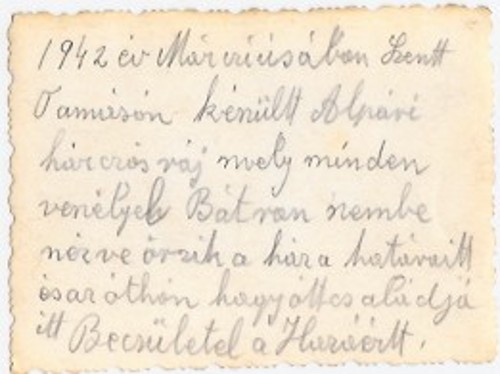 1942 év Márciúsában Szentt
Tamáson készűltt Alpári
hárczos ráj mely minden
veszélyel Bátran szembe
nézve őrzik a háza határaitt
ésaz óthón hagyóttcsaládjá
itt Becsületel a Hazáértt.